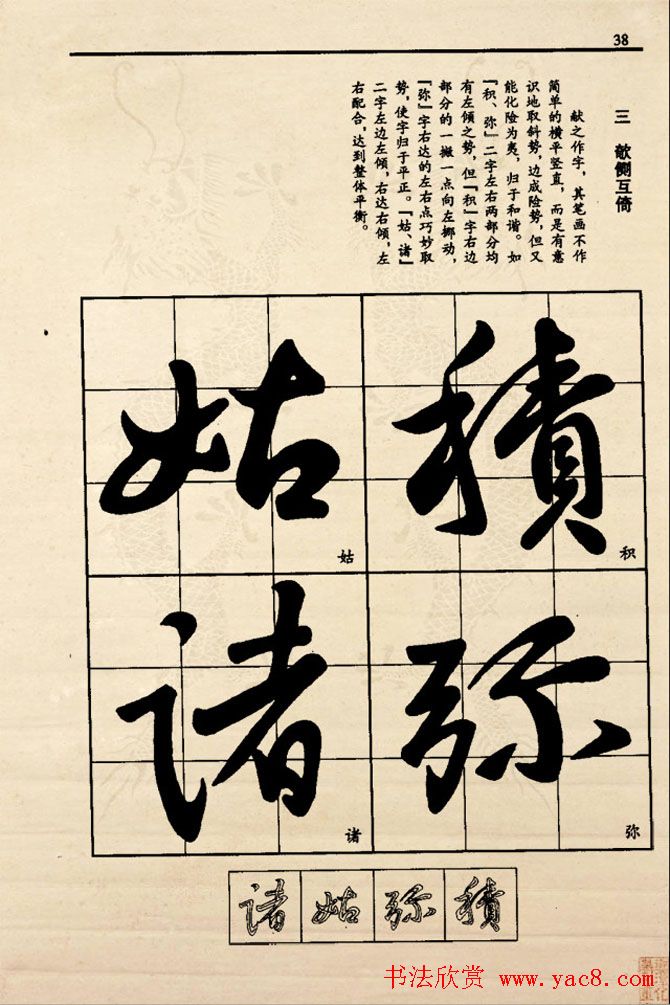 38
三 欹侧互倚
献之作字，其笔画不作
简单的横平竖直，而是有意
识地取斜势，边成险势，但又
能化险为夷，归于和谐。如
『积、弥』二字左右两部分均
有左倾之势，但『积』字右边
部分的一撇一点向左挪动，
『弥』字右达的左右点巧妙取
势，使字归于平正。『姑、诸』
二字左边左倾，右达右倾，左
右配合，达到整体平衡。
積
积
弥
弥
姑
姑
諸
诸
諸 姑 弥 積
书法欣赏 www.yac8.com